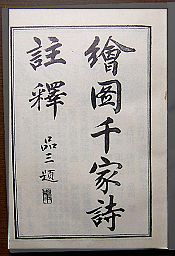 繪圖千家詩
註釋
品三題